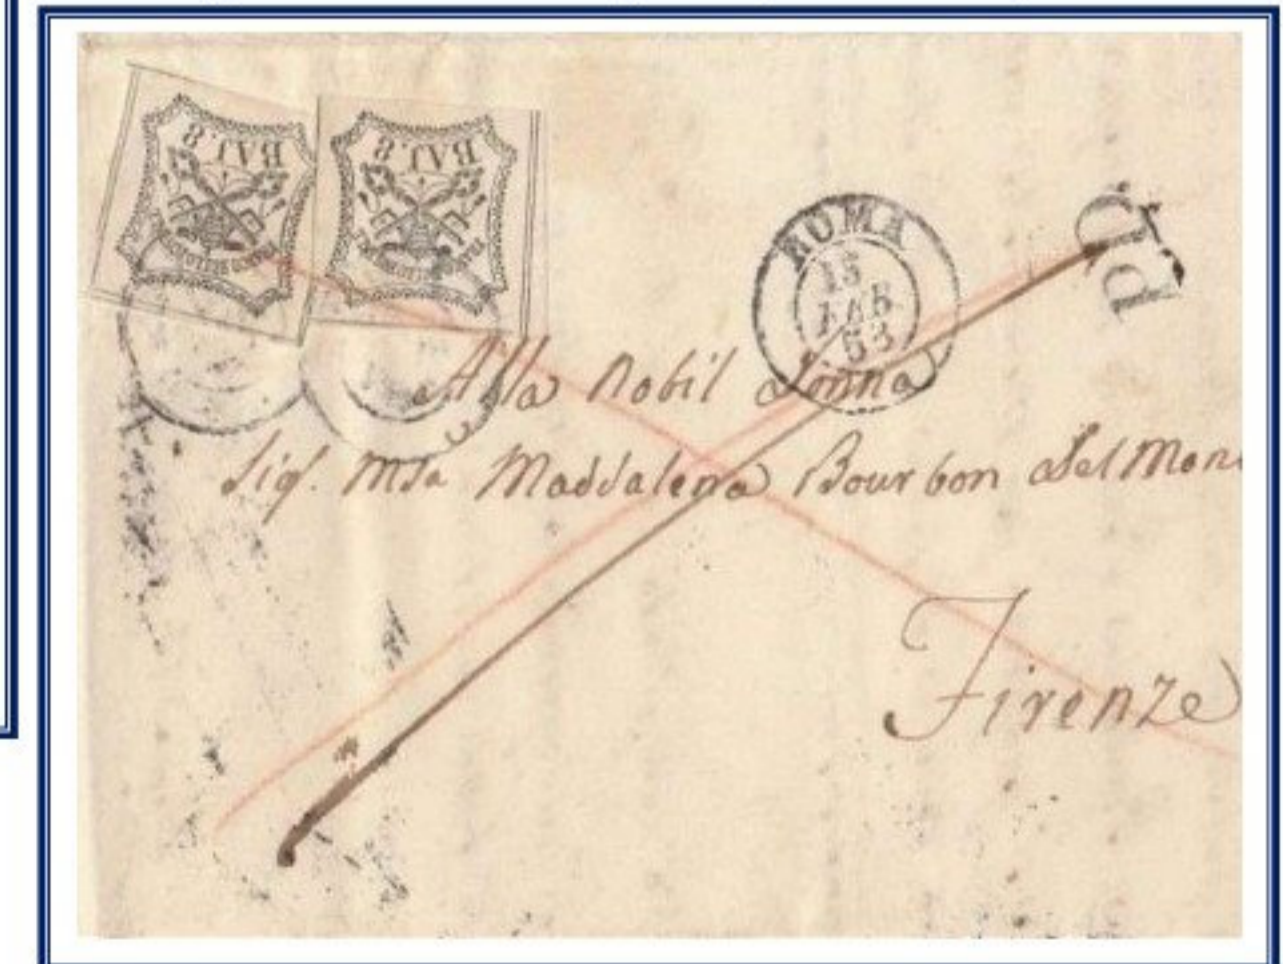 BAJ. 8
BAJ. 8
ROMA
15
FEB
53
PD
Alla Nobil Donna
Sig. Msa Maddalena Bourbon Del Mon
Firenze